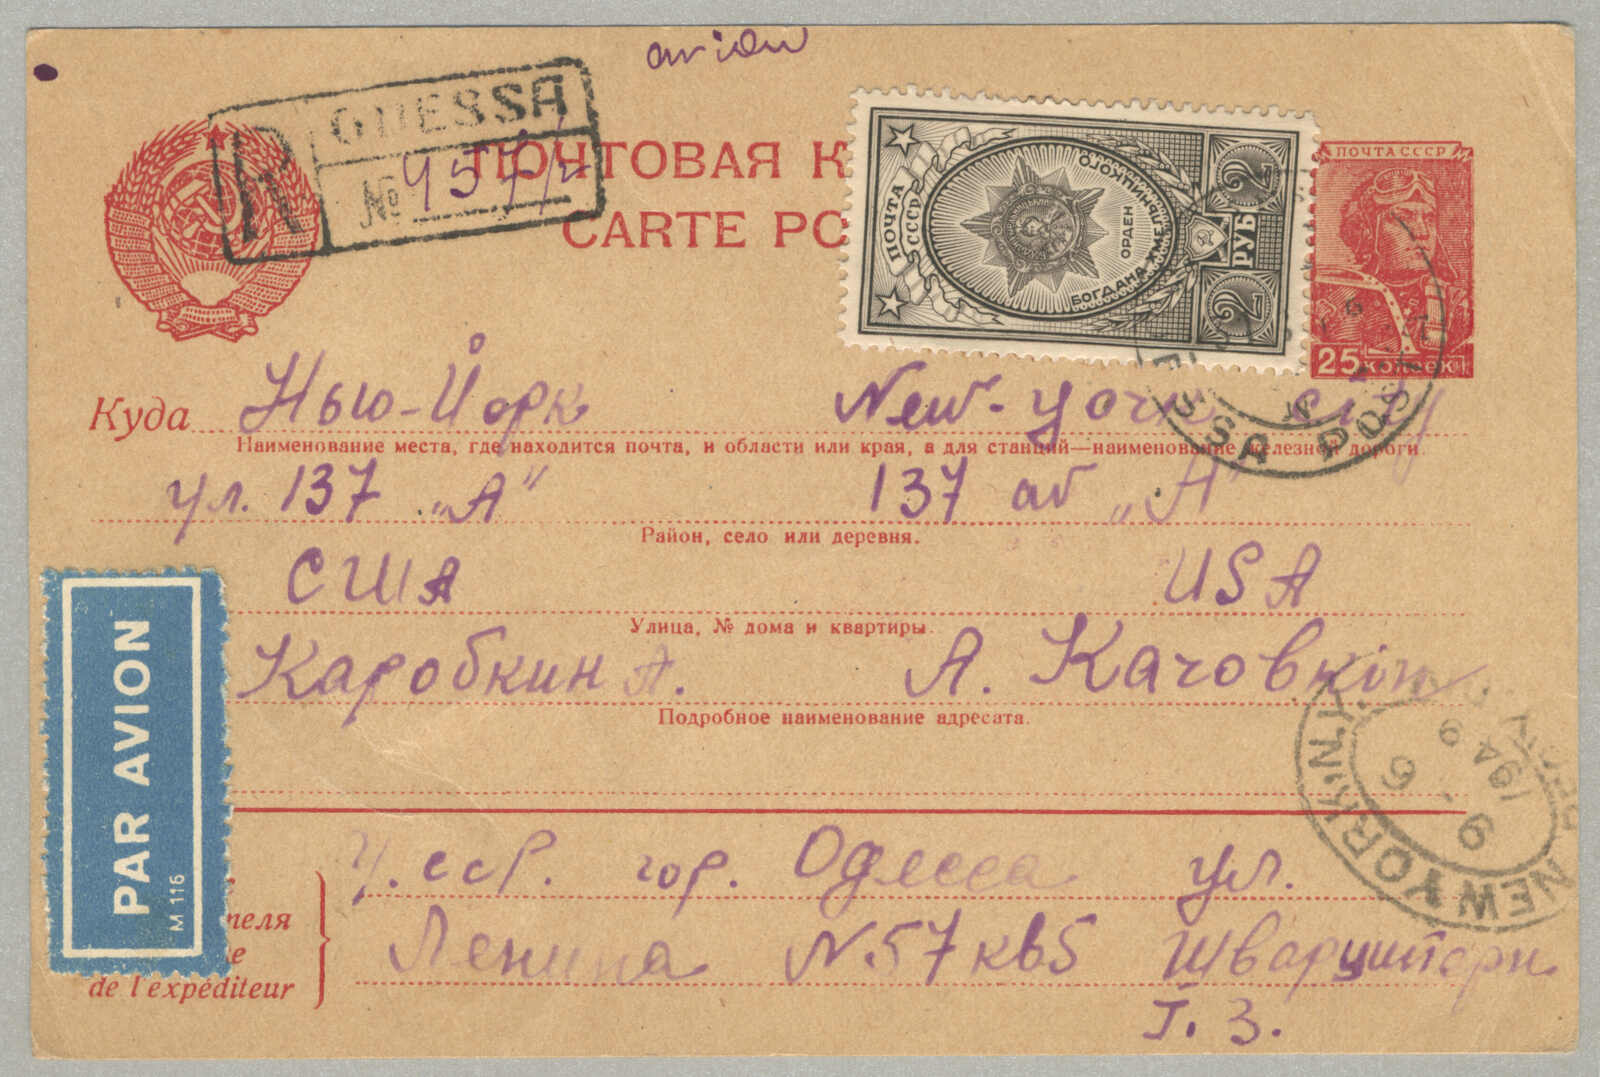 avion
R ODESSA
№
ПОЧТОВАЯ К
CARTE PO
ПОЧТА СССР
ОРДЕН
БОГДАНА ХМЕЛЬНИЦКОГО
2 РУБ 2
ПОЧТА СССР
25 КОПЕЕК
ODESSA POST
Куда Нью-Йорк New-york city
Наименование места, где находится почта, и области или края, а для станций—наименование железной дороги.
ул. 137 „А" 137 „А"
Район, село или деревня.
США USA
Улица, № дома и квартиры.
Каробкин А. А. Качовкін
Подробное наименование адресата.
NEW YORK, N.Y.
6 9
1949
PAR AVION
M 116
У.ССР. гор. Одесса ул.
теля
Ленина N.57 кв5 Шварцштерн
е
de l'expéditeur
Г. З.